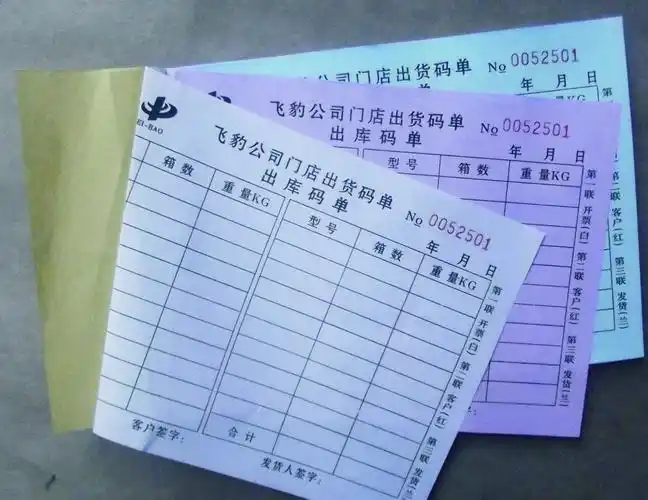 飞豹公司门店出货码单
No 0052501
年 月 日
KG
飞豹公司门店出货码单
出库码单
No 0052501
年 月 日
型号 箱数 重量KG
第一联 开票(白) 第二联 客户(红) 第三联 发货(兰)
EI-BAO
飞豹公司门店出货码单
出库码单
No 0052501
年 月 日
箱数 重量KG 型号 箱数 重量KG
第一联 开票(白) 第二联 客户(红) 第三联
合计
客户签字: 发货人签字: